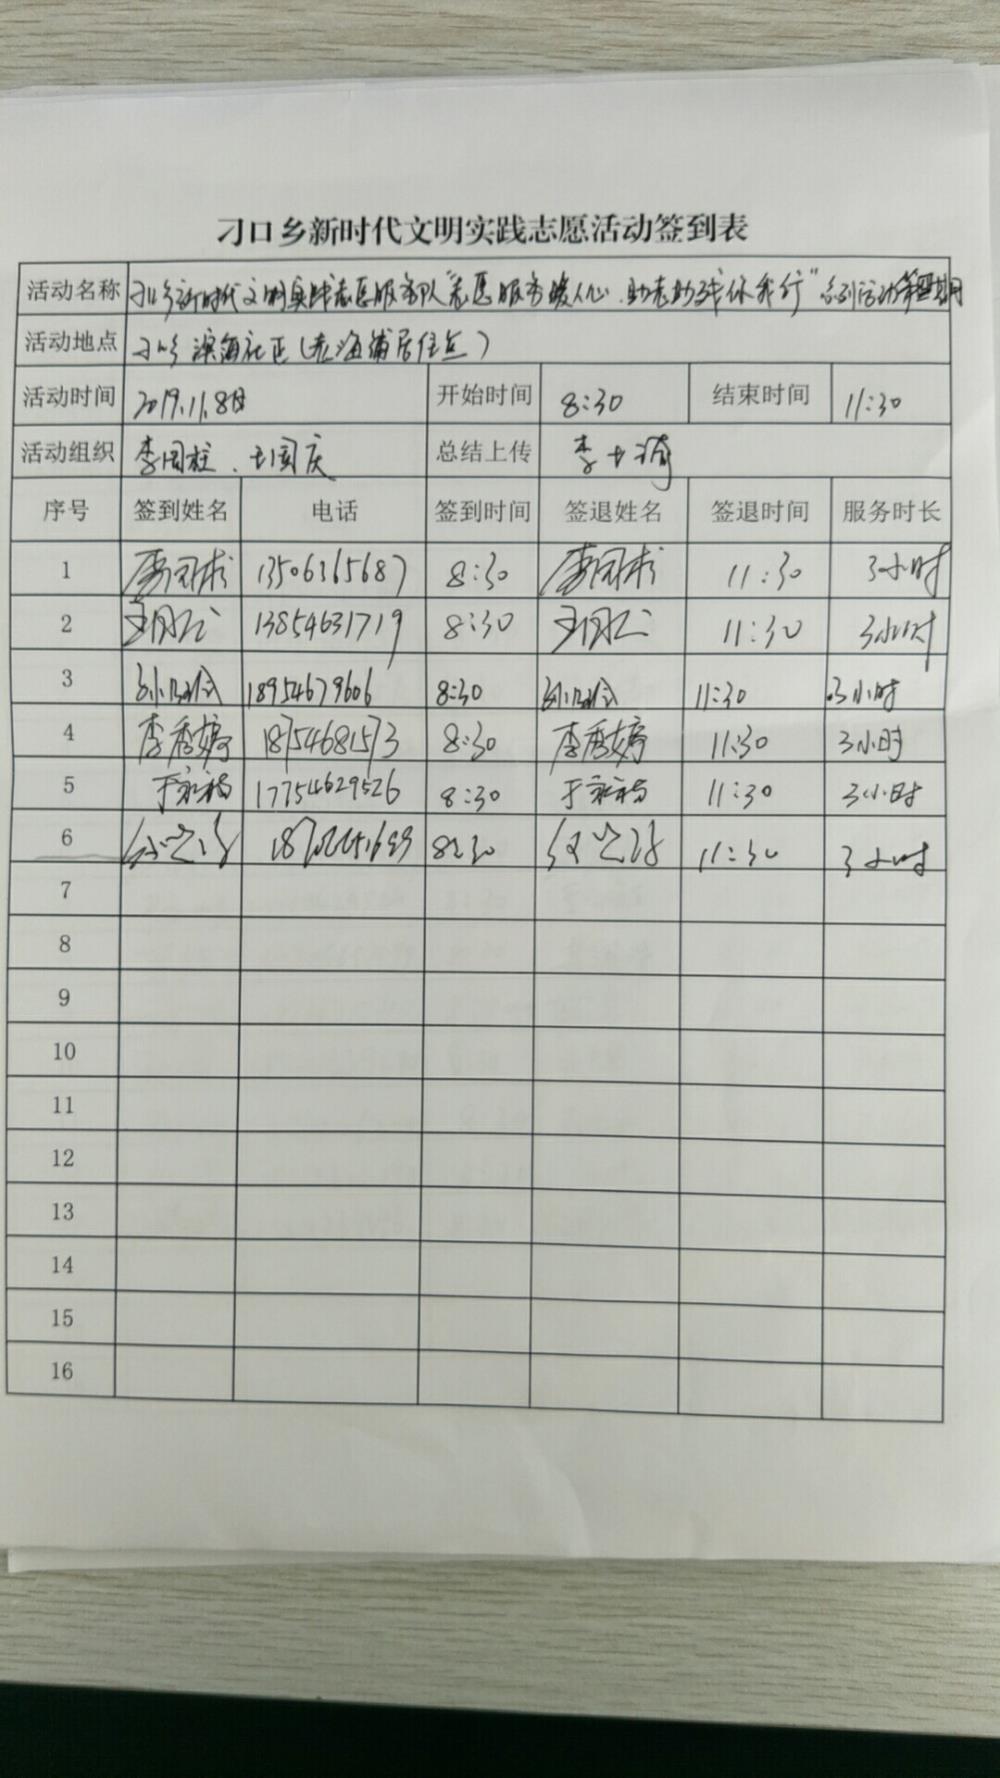 刁口乡新时代文明实践志愿活动签到表
活动名称 刁口乡新时代文明实践志愿服务队"志愿服务暖人心.助老助残你我行"系列活动第四期
活动地点 刁口乡滨海社区(老海铺居住点)
活动时间 2019.11.8日 开始时间 8:30 结束时间 11:30
活动组织 李国柱、王国庆 总结上传 李士琦
序号 签到姓名 电话 签到时间 签退姓名 签退时间 服务时长
1 13506365687 8:30 11:30 3小时
2 13854631719 8:30 11:30 3小时
3 18954679606 8:30 11:30 3小时
4 李秀婷 18754681573 8:30 李秀婷 11:30 3小时
5 17754629526 8:30 11:30 3小时
6 8:30 11:30 3小时
7
8
9
10
11
12
13
14
15
16